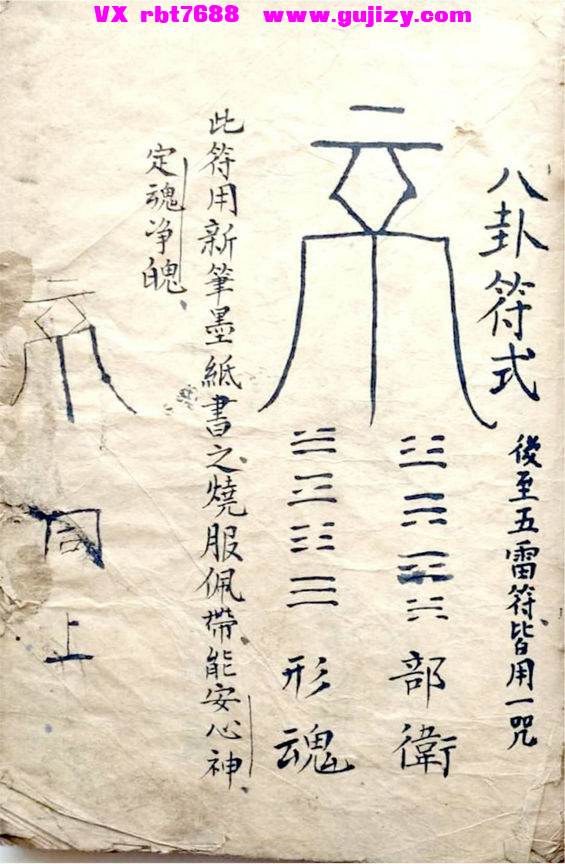 VX rbt7688 www.gujizy.com
八卦符式 後至五雷符皆用一咒
部衛
形魂
此符用新筆墨紙書之燒服佩帶能安心神
定魂净魄
同上